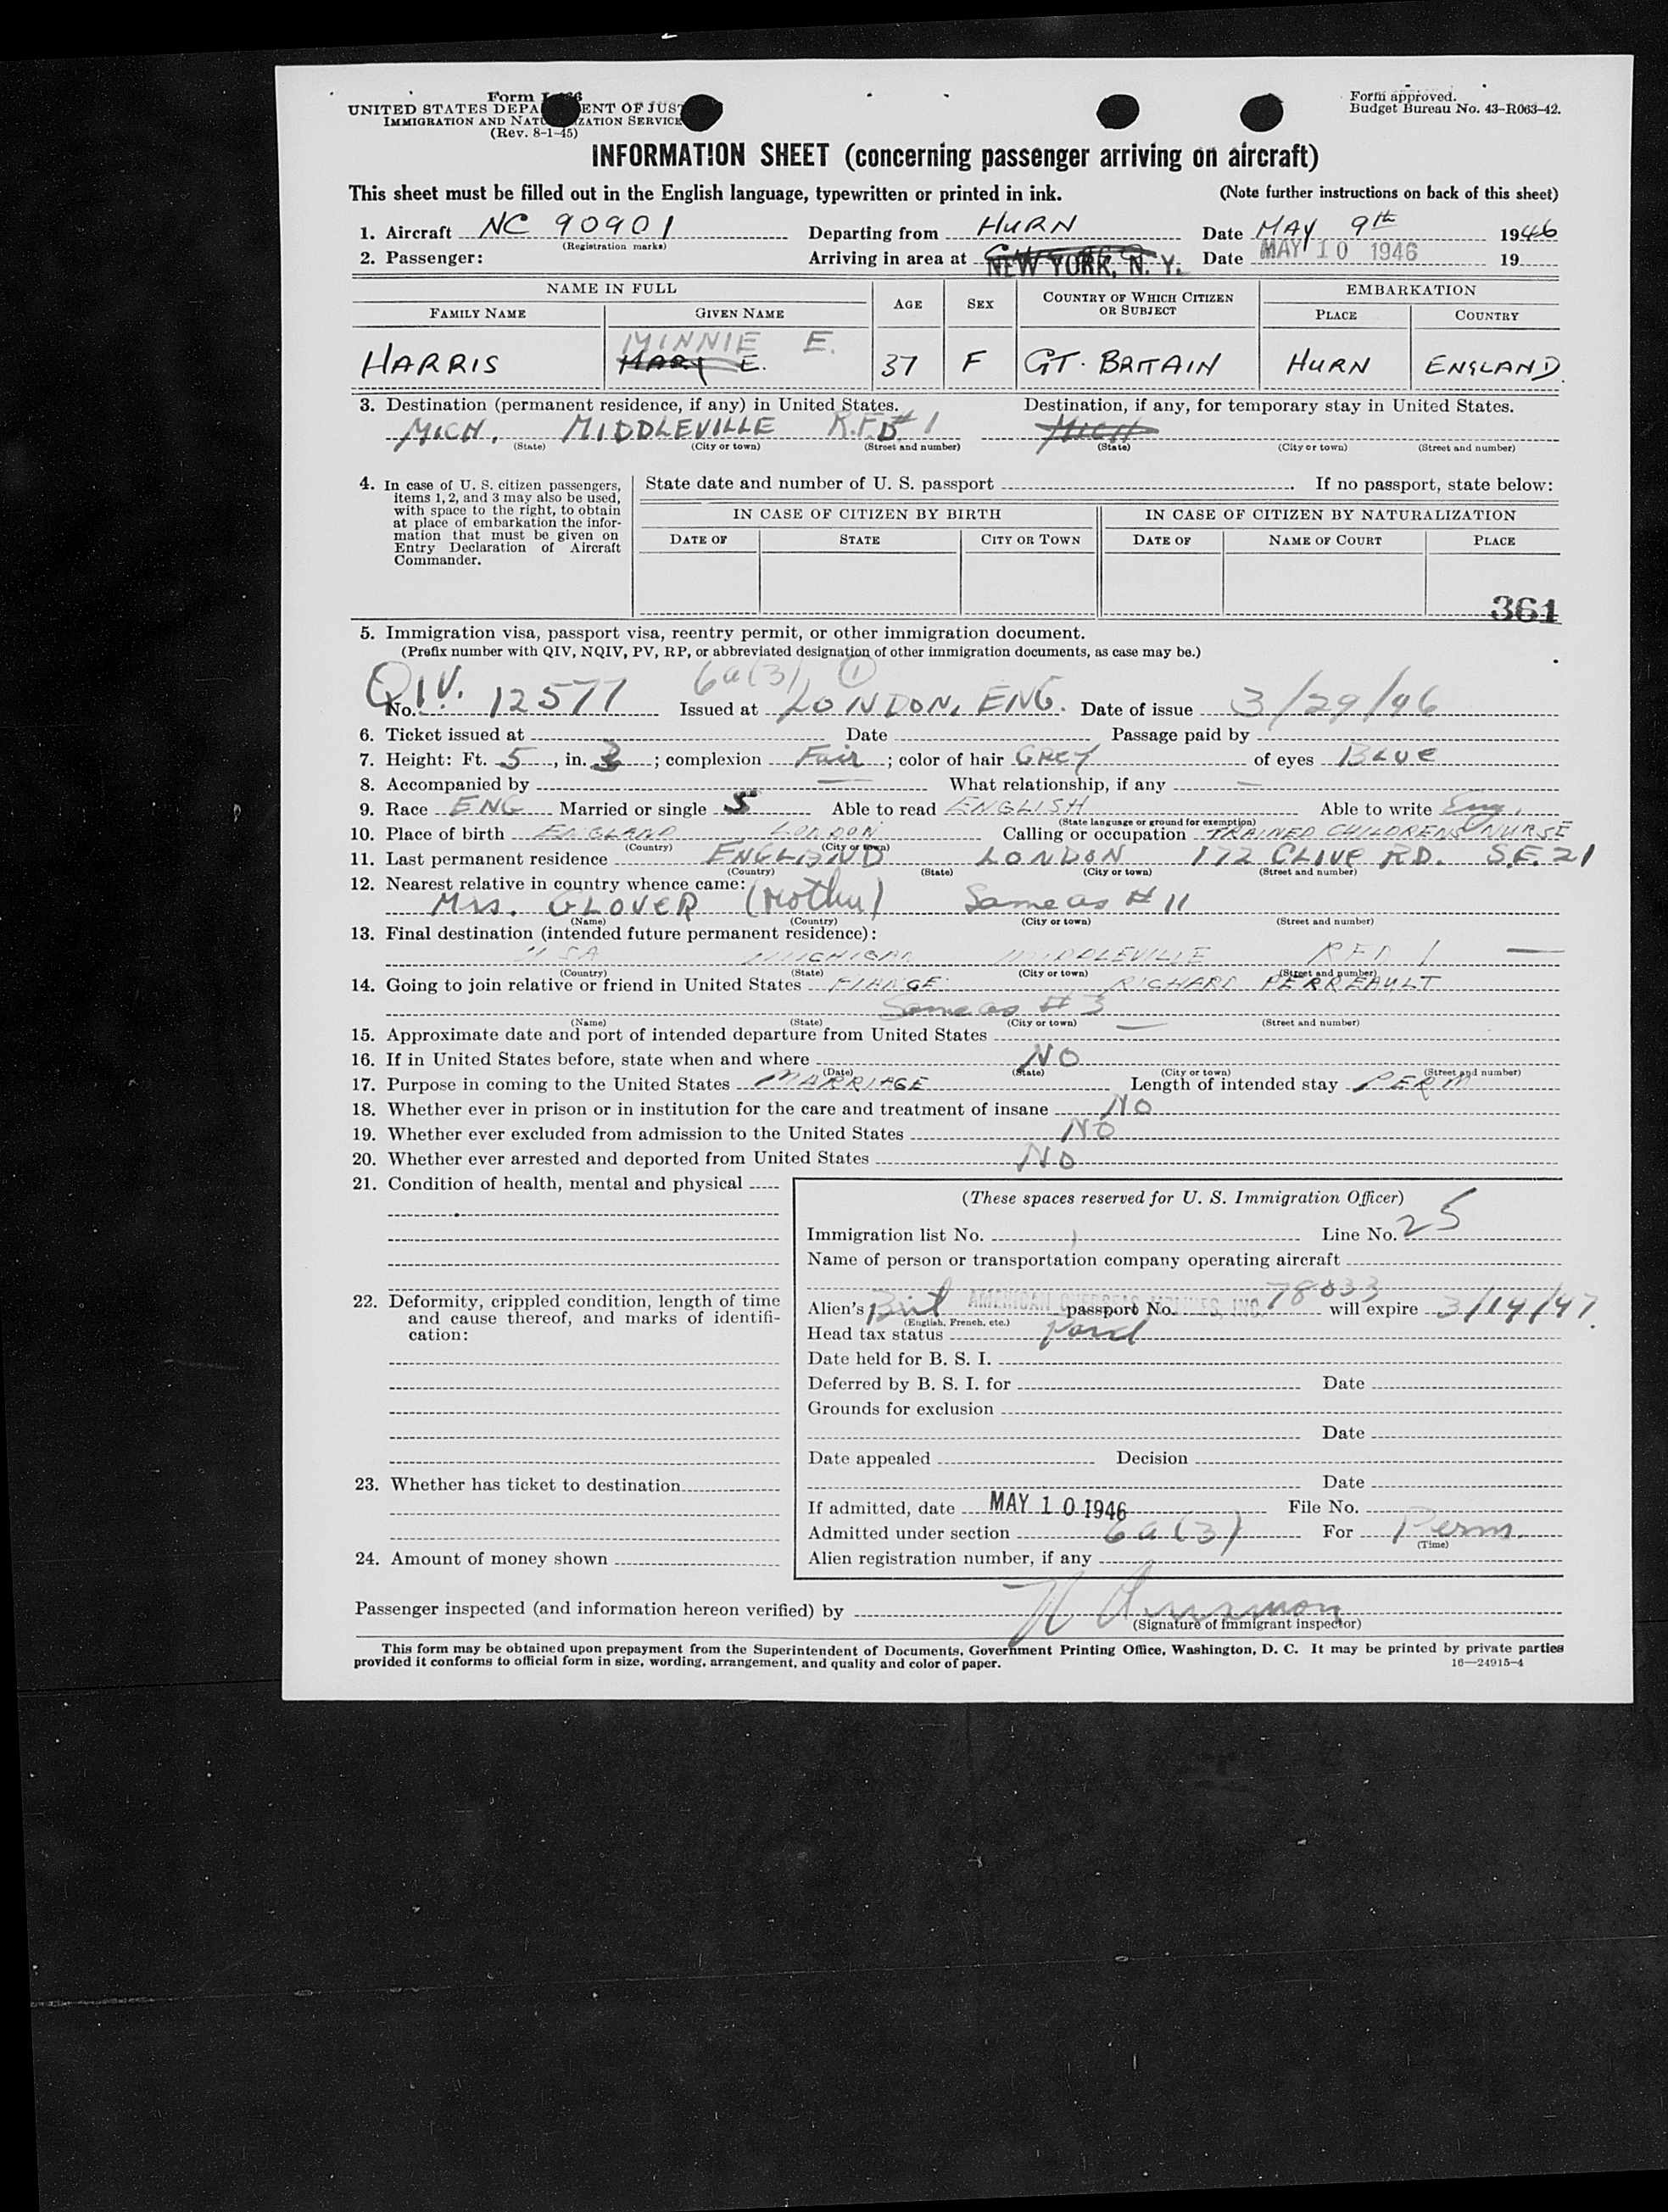 Form I-466
UNITED STATES DEPARTMENT OF JUSTICE
IMMIGRATION AND NATURALIZATION SERVICE
(Rev. 8-1-45)
Form approved.
Budget Bureau No. 43-R063-42.
INFORMATION SHEET (concerning passenger arriving on aircraft)
This sheet must be filled out in the English language, typewritten or printed in ink. (Note further instructions on back of this sheet)
1. Aircraft NC 90901 (Registration marks) Departing from HURN Date MAY 9th 1946
2. Passenger: Arriving in area at NEW YORK, N. Y. Date MAY 10 1946 19
NAME IN FULL AGE SEX COUNTRY OF WHICH CITIZEN OR SUBJECT EMBARKATION
FAMILY NAME GIVEN NAME PLACE COUNTRY
MINNIE E.
HARRIS MARY E. 37 F GT. BRITAIN HURN ENGLAND
3. Destination (permanent residence, if any) in United States. Destination, if any, for temporary stay in United States.
MICH. MIDDLEVILLE R.F.D # 1 MICH
(State) (City or town) (Street and number) (State) (City or town) (Street and number)
4. In case of U. S. citizen passengers, items 1, 2, and 3 may also be used, with space to the right, to obtain at place of embarkation the information that must be given on Entry Declaration of Aircraft Commander.
State date and number of U. S. passport If no passport, state below:
IN CASE OF CITIZEN BY BIRTH IN CASE OF CITIZEN BY NATURALIZATION
DATE OF STATE CITY OR TOWN DATE OF NAME OF COURT PLACE
361
5. Immigration visa, passport visa, reentry permit, or other immigration document.
(Prefix number with QIV, NQIV, PV, RP, or abbreviated designation of other immigration documents, as case may be.)
6a(3) 1
QIV. No. 12577 Issued at LONDON, ENG. Date of issue 3/29/46
6. Ticket issued at Date Passage paid by
7. Height: Ft. 5, in. 3; complexion Fair; color of hair GREY of eyes BLUE
8. Accompanied by — What relationship, if any —
9. Race ENG Married or single S Able to read ENGLISH Able to write Eng.
(State language or ground for exemption)
10. Place of birth ENGLAND LONDON Calling or occupation TRAINED CHILDRENS NURSE
(Country) (City or town)
11. Last permanent residence ENGLAND LONDON 172 CLIVE RD. S.E. 21
(Country) (State) (City or town) (Street and number)
12. Nearest relative in country whence came:
Mrs. GLOVER (Mother) Same as # 11
(Name) (Country) (City or town) (Street and number)
13. Final destination (intended future permanent residence):
USA MICHIGAN MIDDLEVILLE RFD 1 —
(Country) (State) (City or town) (Street and number)
14. Going to join relative or friend in United States FIANCE RICHARD PERREAULT
Same as # 3
(Name) (State) (City or town) (Street and number)
15. Approximate date and port of intended departure from United States —
16. If in United States before, state when and where NO
(Date) (State) (City or town) (Street and number)
17. Purpose in coming to the United States MARRIAGE Length of intended stay PERM
18. Whether ever in prison or in institution for the care and treatment of insane NO
19. Whether ever excluded from admission to the United States NO
20. Whether ever arrested and deported from United States NO
21. Condition of health, mental and physical
22. Deformity, crippled condition, length of time and cause thereof, and marks of identification:
23. Whether has ticket to destination
24. Amount of money shown
(These spaces reserved for U. S. Immigration Officer)
Immigration list No. 1 Line No. 25
Name of person or transportation company operating aircraft
AMERICAN OVERSEAS AIRLINES, INC.
Alien's Brit passport No. 78033 will expire 3/14/47.
(English, French, etc.)
Head tax status Paid
Date held for B. S. I.
Deferred by B. S. I. for Date
Grounds for exclusion
Date
Date appealed Decision
Date
If admitted, date MAY 10 1946 File No.
Admitted under section 6a(3) For Perm.
(Time)
Alien registration number, if any
Passenger inspected (and information hereon verified) by
(Signature of immigrant inspector)
This form may be obtained upon prepayment from the Superintendent of Documents, Government Printing Office, Washington, D. C. It may be printed by private parties
provided it conforms to official form in size, wording, arrangement, and quality and color of paper. 16—24915-4